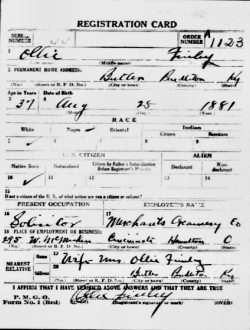 REGISTRATION CARD
SERIAL NUMBER
ORDER NUMBER A1123
1 Ollie Finley
(Middle name)
2 PERMANENT HOME ADDRESS:
Butler Pendleton Ky
(No.) (Street or R. F. D. No.) (City or town) (County) (State)
Age in Years
Date of Birth
3 37 4 Aug 25 1881
(Month) (Day) (Year)
RACE
White
Negro
Oriental
Indian
Citizen
Noncitizen
5
6
7
8
9
U. S. CITIZEN
ALIEN
Native Born
Naturalized
Citizen by Father's Naturalization Before Registrant's Majority
Declarant
Non-declarant
10
11
12
13
14
15
If not a citizen of the U. S., of what nation are you a citizen or subject?
PRESENT OCCUPATION
EMPLOYER'S NAME
16 Solicitor
17 Merchants Creamery Co
18 PLACE OF EMPLOYMENT OR BUSINESS:
W. McMicken Cincinnati Hamilton O
(No.) (Street or R. F. D. No.) (City or town) (County) (State)
NEAREST RELATIVE
Name
19 Wife Mrs Ollie Finley
Address
20 Butler Ky
(No.) (Street or R. F. D. No.) (City or town) (County) (State)
I AFFIRM THAT I HAVE VERIFIED ABOVE ANSWERS AND THAT THEY ARE TRUE
P. M. G. O.
Form No. 1 (Red)
Ollie Finley
(Registrant's signature or mark)
(OVER)